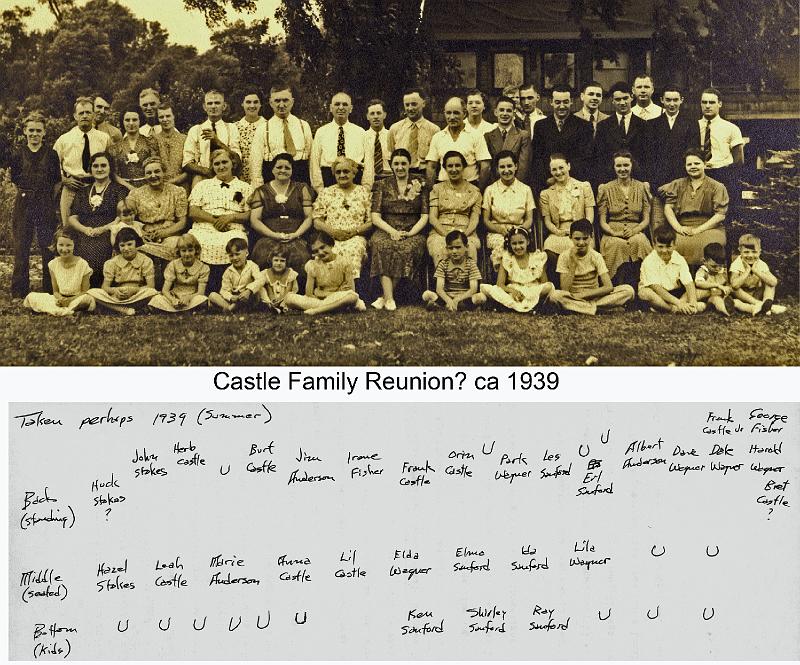 Castle Family Reunion? ca 1939
Taken perhaps 1939 (Summer)
Frank Castle Jr George Fisher
Back (standing) Huck Stokes ? John Stokes Herb Castle U Burt Castle Jim Anderson Irene Fisher Frank Castle Orin Castle U Park Wegner Les Sanford U U Erl Sanford Albert Anderson Dave Wegner Dale Wegner Harold Wegner Bret Castle ?
Middle (seated) Hazel Stokes Leah Castle Marie Anderson Anna Castle Lil Castle Elda Wegner Elma Sanford Ida Sanford Lila Wegner U U
Bottom (kids) U U U U U U Ken Sanford Shirley Sanford Ray Sanford U U U